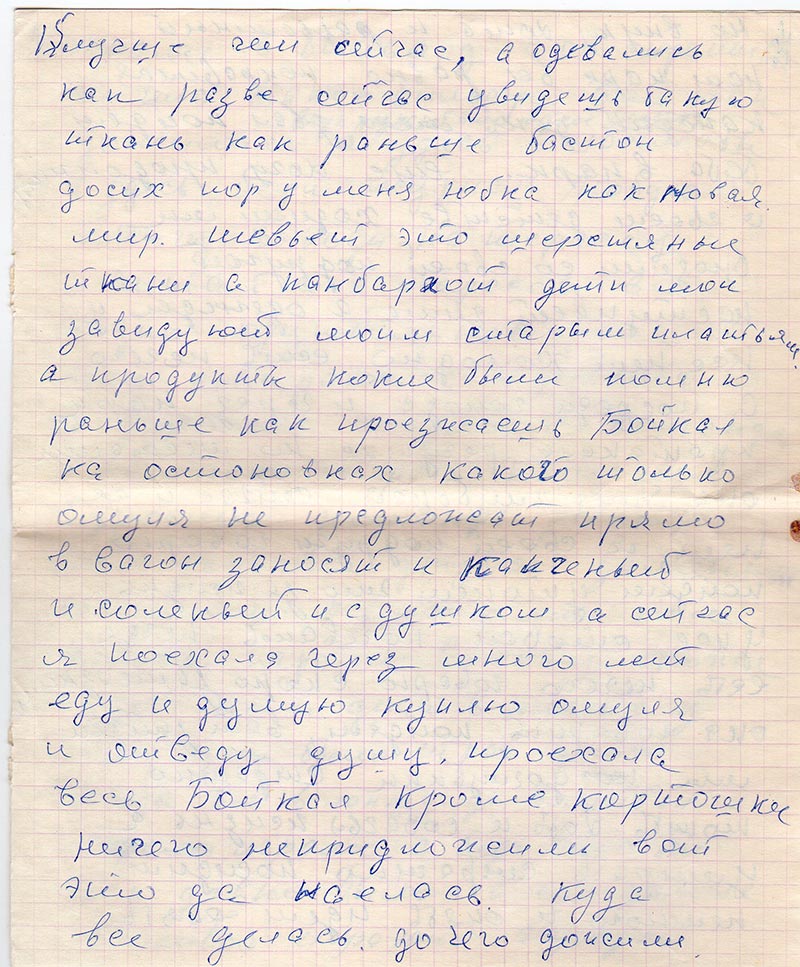 15 лучше чем сейчас, а одевались
как разве сейчас увидешь такую
ткань как раньше бастон
досих пор у меня юбка как новая.
мир. шевьет это шерстяные
ткани а панбархот дети мои
завидуют моим старым платьям.
а продукты какие были помню
раньше как проезжаешь Бойкал
на остоновках какого только
омуля не предложат прямо
в вагон заносят и капченый
и соленый и с душком а сейчас
я поехала через много лет
еду и думую куплю омуля
и отведу душу. проехала
весь Бойкал кроме картошки
ничего непридложили вот
это да наелась. куда
все делась. до чего дожили.